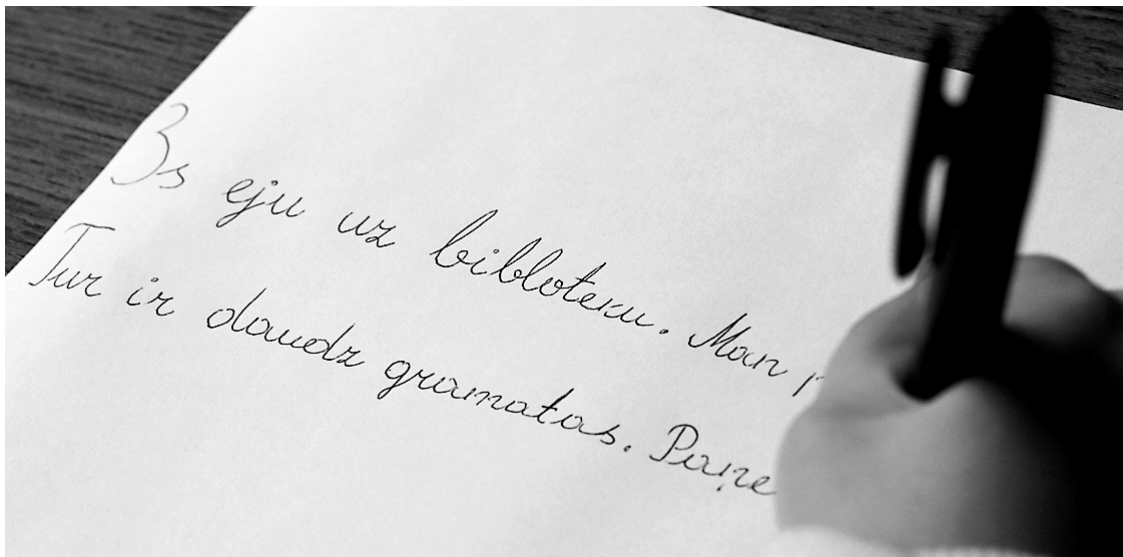 Es eju uz bibloteku. Man
Tur ir daudz gramatas. Paņe